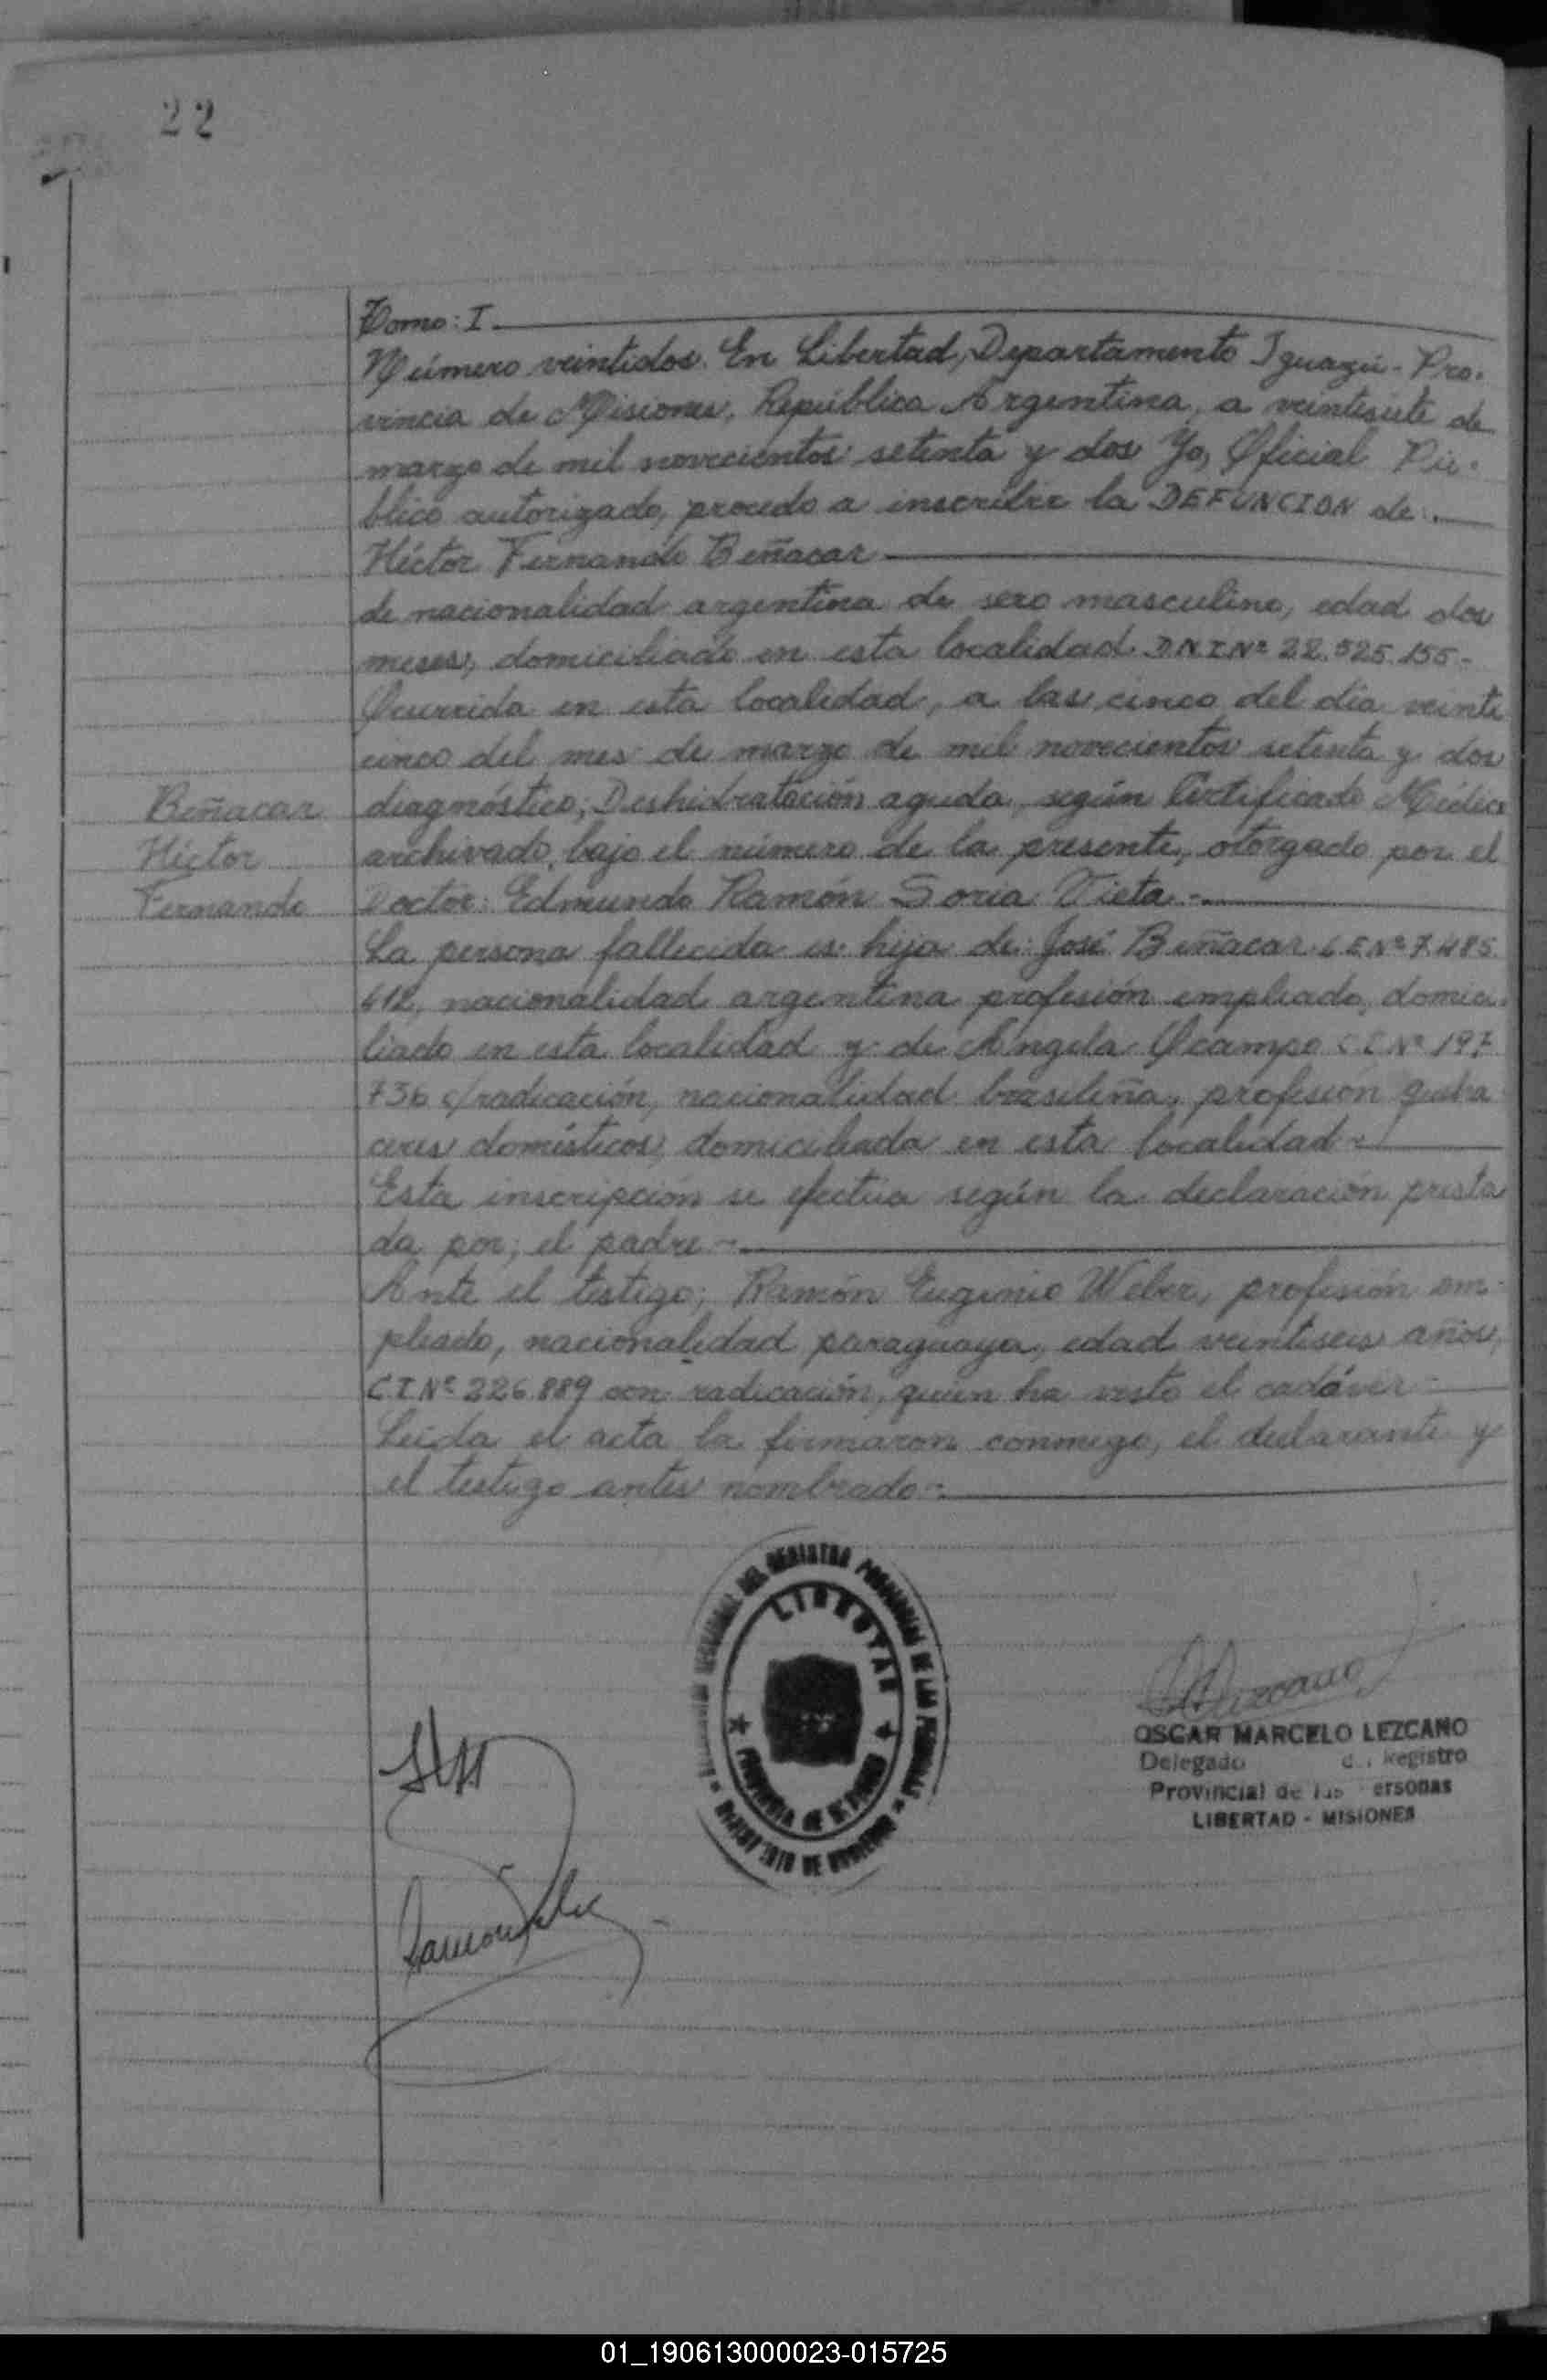 22
Tomo: I.
Número veintidos. En Libertad, Departamento Iguazú - Pro-
vincia de Misiones, República Argentina, a veintisiete de
marzo de mil novecientos setenta y dos Yo, Oficial Pú-
blico autorizado, procedo a inscribir la DEFUNCION de:
Héctor Fernando Beñacar
de nacionalidad argentina de sexo masculino, edad dos
meses, domiciliado en esta localidad DNI Nº 22.525.155-
Ocurrida en esta localidad, a las cinco del día veinti
cinco del mes de marzo de mil novecientos setenta y dos
diagnóstico; Deshidratación aguda, según Certificado Médico
archivado, bajo el número de la presente, otorgado por el
Doctor: Edmundo Ramón Soria Vieta.-
Beñacar
Héctor
Fernando
La persona fallecida es hijo de: José Beñacar L E Nº 7.485.
612, nacionalidad argentina profesión empleado, domici-
liado en esta localidad y de Angela Ocampo C I Nº 197.
736 c/radicación, nacionalidad brasileña, profesión queha
ceres domésticos, domiciliada en esta localidad-
Esta inscripción se efectúa según la declaración presta
da por; el padre-
Ante el testigo; Ramón Eugenio Weber, profesión em-
pleado, nacionalidad paraguaya, edad veintiseis años,
C I Nº 226.889 con radicación, quien ha visto el cadáver-
Leída el acta la firmaron conmigo, el declarante y
el testigo antes nombrado-
DEL REGISTRO PROVINCIAL DE LAS PERSONAS
LIBERTAD
PROVINCIA DE MISIONES
MINISTERIO DE GOBIERNO
OSCAR MARCELO LEZCANO
Delegado Registro
Provincial de las ersonas
LIBERTAD - MISIONES
01_190613000023-015725